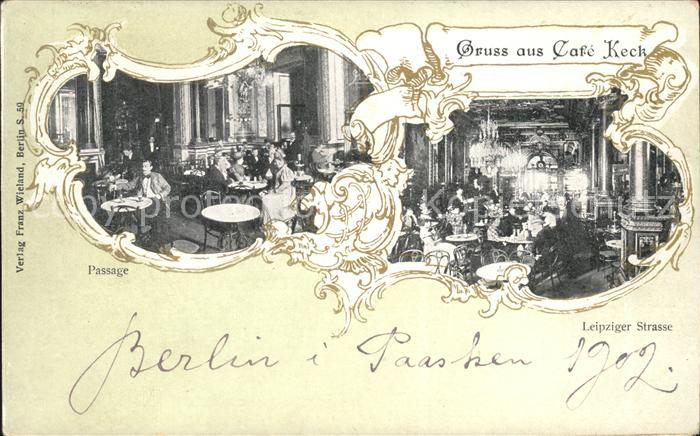 Gruss aus Café Keck
Verlag Franz Wieland, Berlin S. 59
Passage
Leipziger Strasse
Berlin i Paasken 1902.